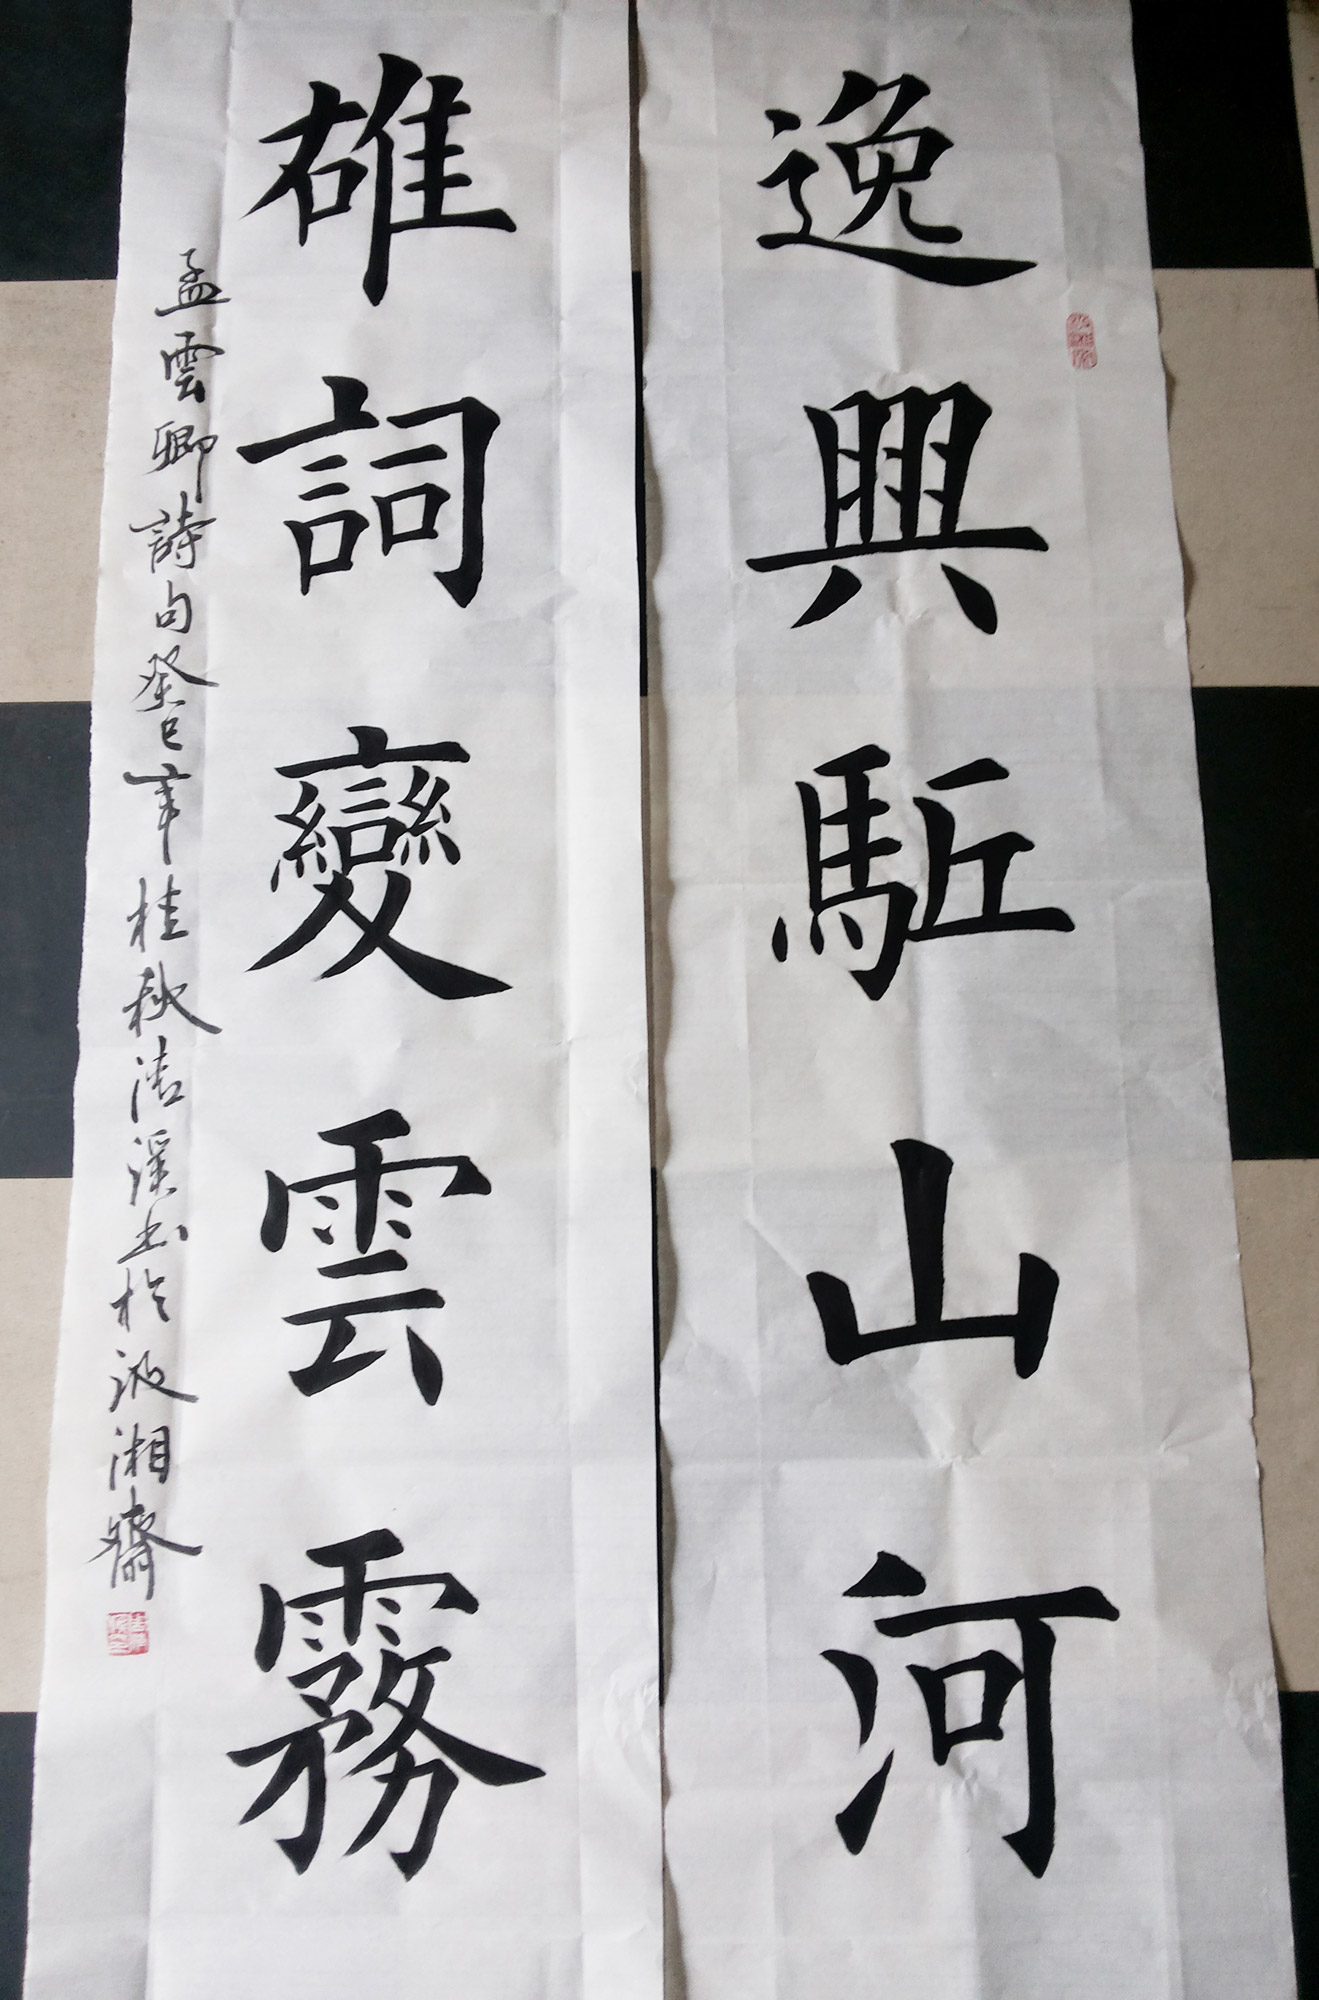 逸興駈山河
雄詞變雲霧
孟雲卿詩句癸巳年桂秋清溪書於汲湘齋